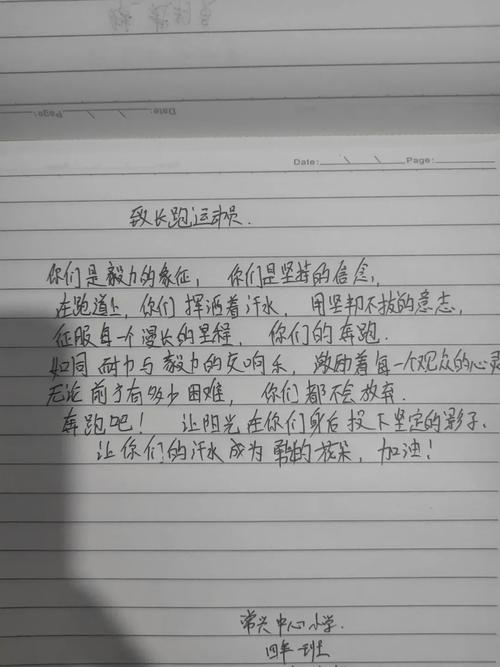 Date:
Page:
Date: Page:
致长跑运动员.
你们是毅力的象征, 你们是坚持的信念,
在跑道上, 你们挥洒着汗水, 用坚韧不拔的意志,
征服每一个漫长的里程, 你们的奔跑.
如同耐力与毅力的交响乐, 激励着每一个观众的心灵
无论前方有多少困难, 你们都不会放弃.
奔跑吧! 让阳光在你们身后投下坚定的影子.
让你们的汗水成为 的花朵, 加油!
常兴中心小学.
四年一班